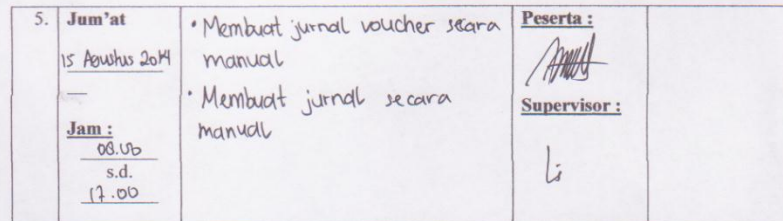 5.
Jum'at
15 Agustus 2014
Jam :
08.00
s.d.
17.00
• Membuat jurnal voucher secara
manual
• Membuat jurnal secara
manual
Peserta :
Supervisor :